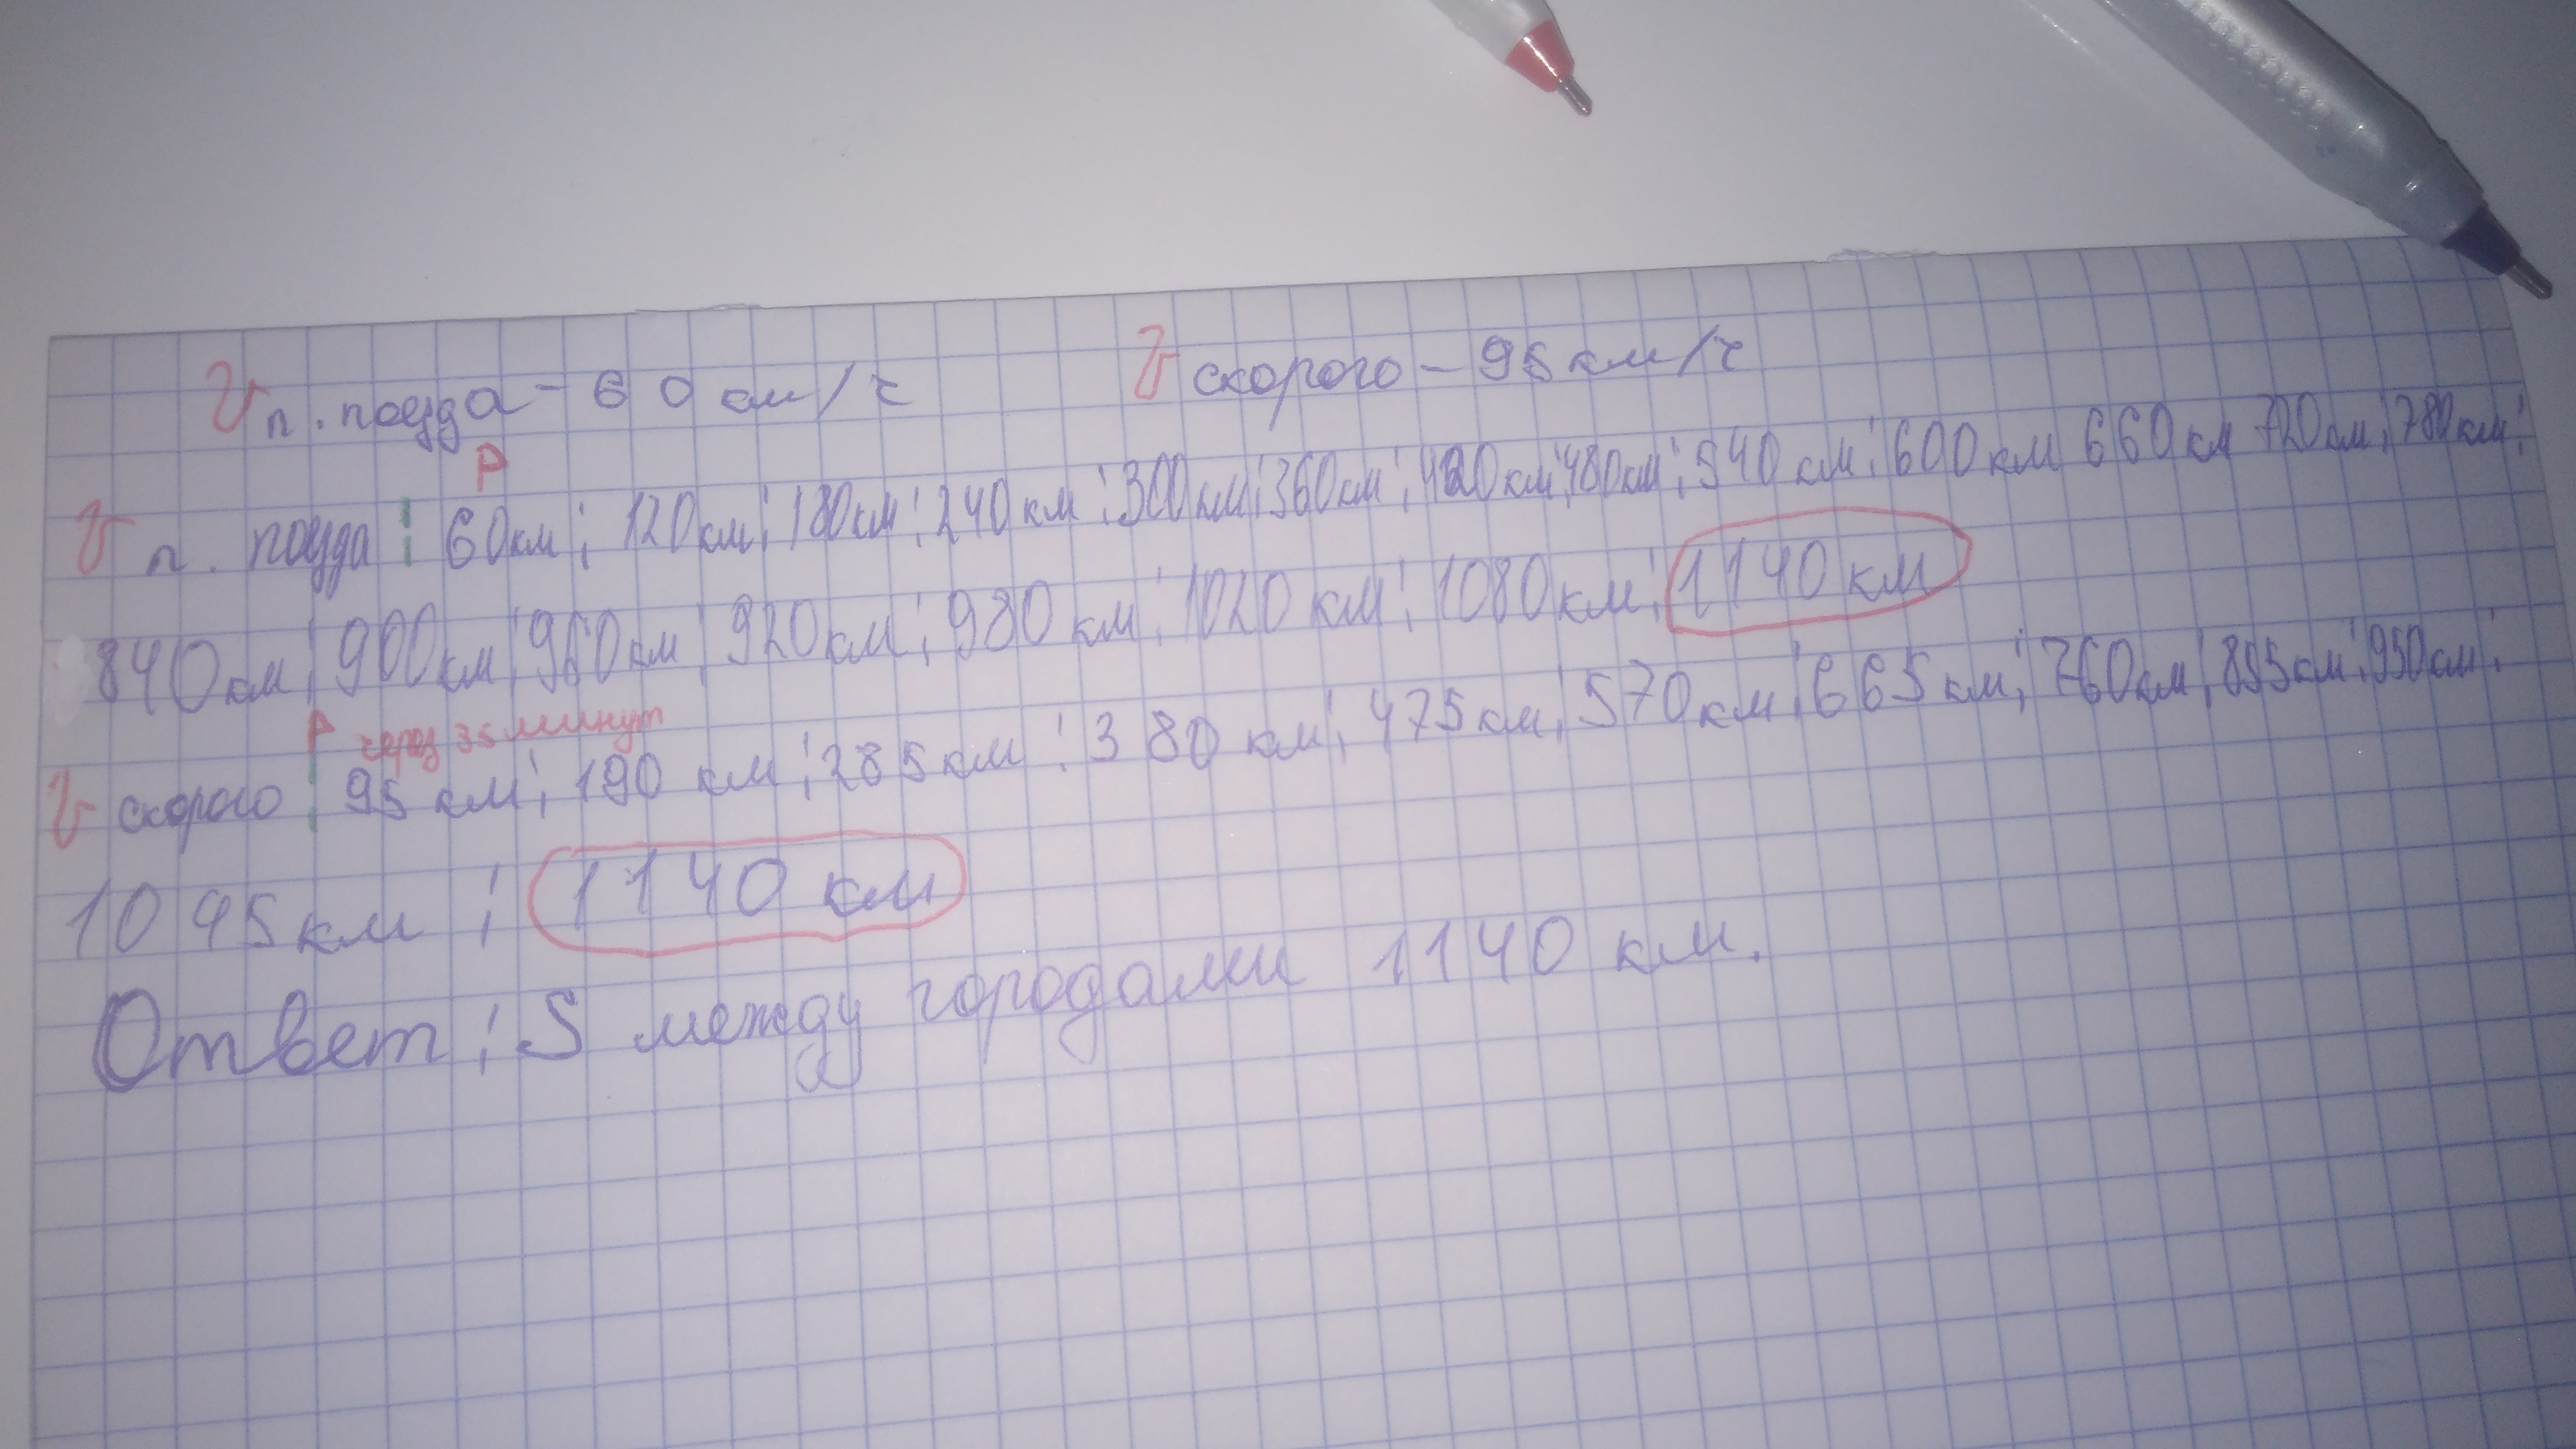 V п. поезда - 60 км/ч V скорого - 95 км/ч
Р
V п. поезда : 60км; 120км; 180км; 240 км; 300км; 360км; 420км; 480км; 540 км; 600 км 660 км 720км; 780км;
840км; 900км; 960км; 920км; 980 км; 1020 км; 1080км; 1140 км
Р через 35 минут
V скорого : 95 км; 190 км; 285км; 380 км; 475км; 570км; 665км; 760км; 855км; 950км;
1045км; 1140 км
Ответ: S между городами 1140 км.